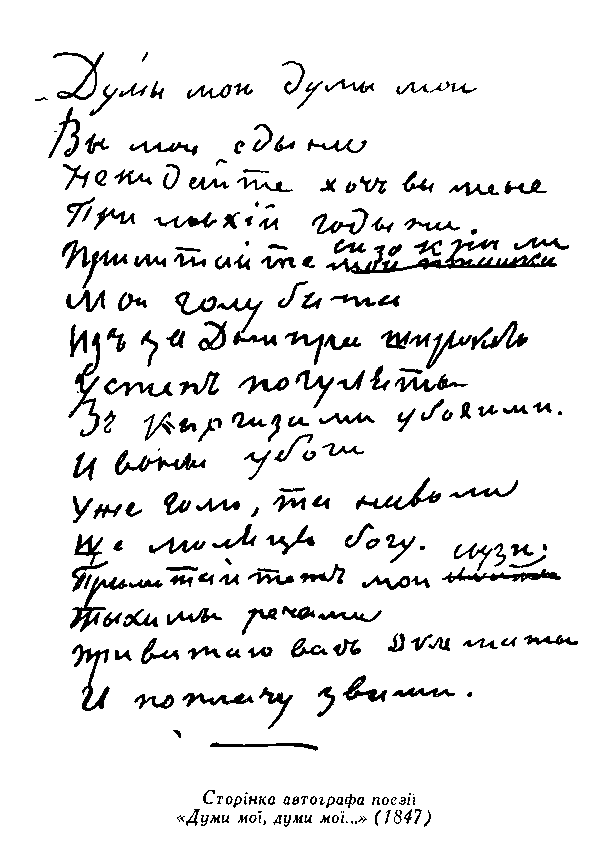 Думы мои думы мои
Вы мои едыни
Некидайте хочъ вы мене
При лыхій годыни.
Прилитайте сизокрыли
Мои голубята
Изъ за Днипра широкого
У степъ погуляты
Зъ Киргизами убогими.
И воны убоги
Уже голи, та наволи
Ще молятця богу.
Прилитайтежъ мои любі
Тыхимы речами
Привитаю васъ
И поплачу звами.
Сторінка автографа поезії
«Думи мої, думи мої...» (1847)